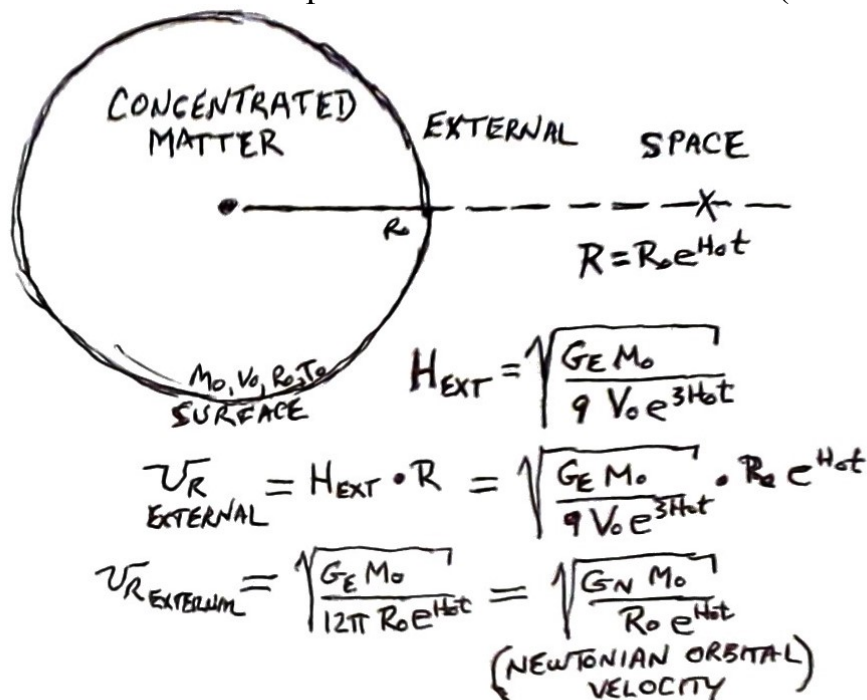 CONCENTRATED
MATTER
EXTERNAL SPACE
R₀
R = R₀e^{H₀t}
M₀, V₀, R₀, T₀
SURFACE
H_EXT = √(G_E M₀ / 9 V₀e^{3H₀t})
V_R EXTERNAL = H_EXT • R = √(G_E M₀ / 9 V₀e^{3H₀t}) • R₀ e^{H₀t}
V_R EXTERNAL = √(G_E M₀ / 12π R₀e^{H₀t}) = √(G_N M₀ / R₀ e^{H₀t})
(NEWTONIAN ORBITAL
VELOCITY